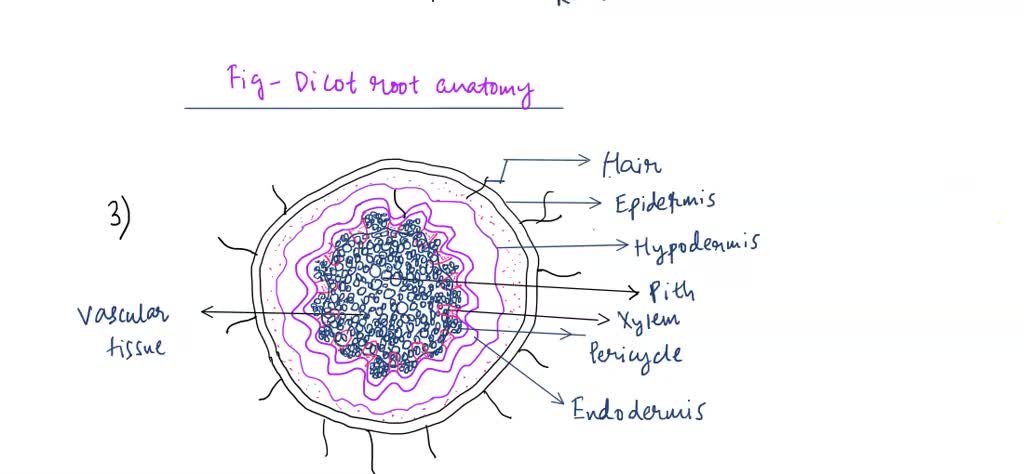 Fig - Dicot root anatomy
3)
Hair
Epidermis
Hypodermis
Pith
Xylem
Pericycle
Endodermis
Vascular
tissue